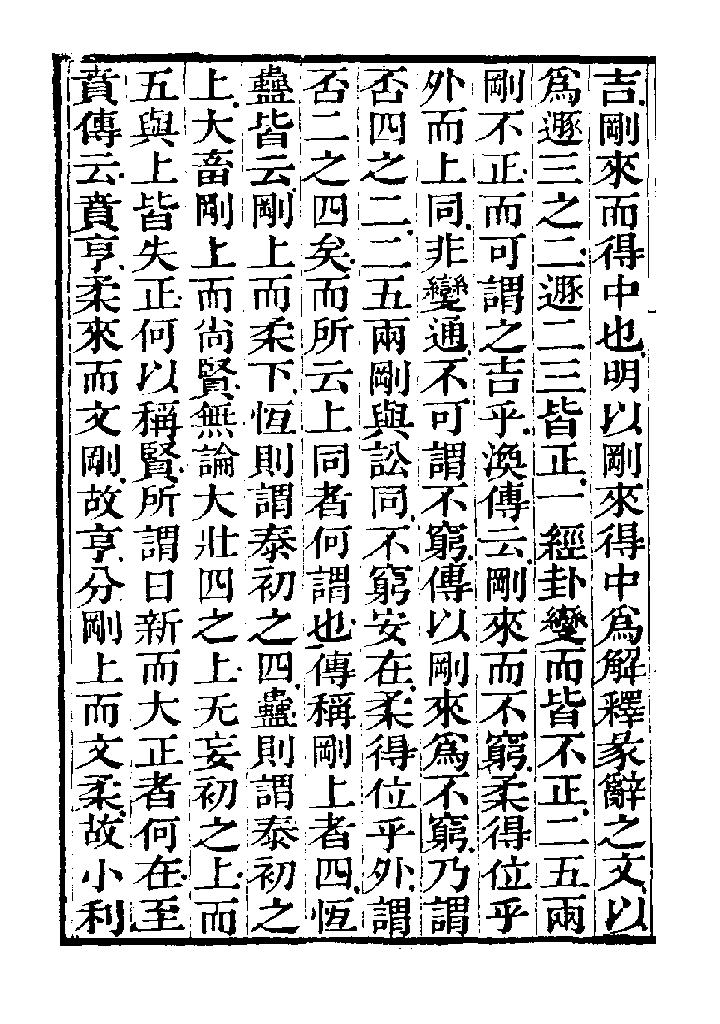 吉剛來而得中也明以剛來得中爲解釋彖辭之文以
爲遯三之二遯二三皆正一經卦變而皆不正二五兩
剛不正而可謂之吉乎渙傳云剛來而不窮柔得位乎
外而上同非變通不可謂不窮傳以剛來爲不窮乃謂
否四之二二五兩剛與訟同不窮安在柔得位乎外謂
否二之四矣而所云上同者何謂也傳稱剛上者四恆
蠱皆云剛上而柔下恆則謂泰初之四蠱則謂泰初之
上大畜剛上而尙賢無論大壯四之上无妄初之上而
五與上皆失正何以稱賢所謂日新而大正者何在至
賁傳云賁亨柔來而文剛故亨分剛上而文柔故小利